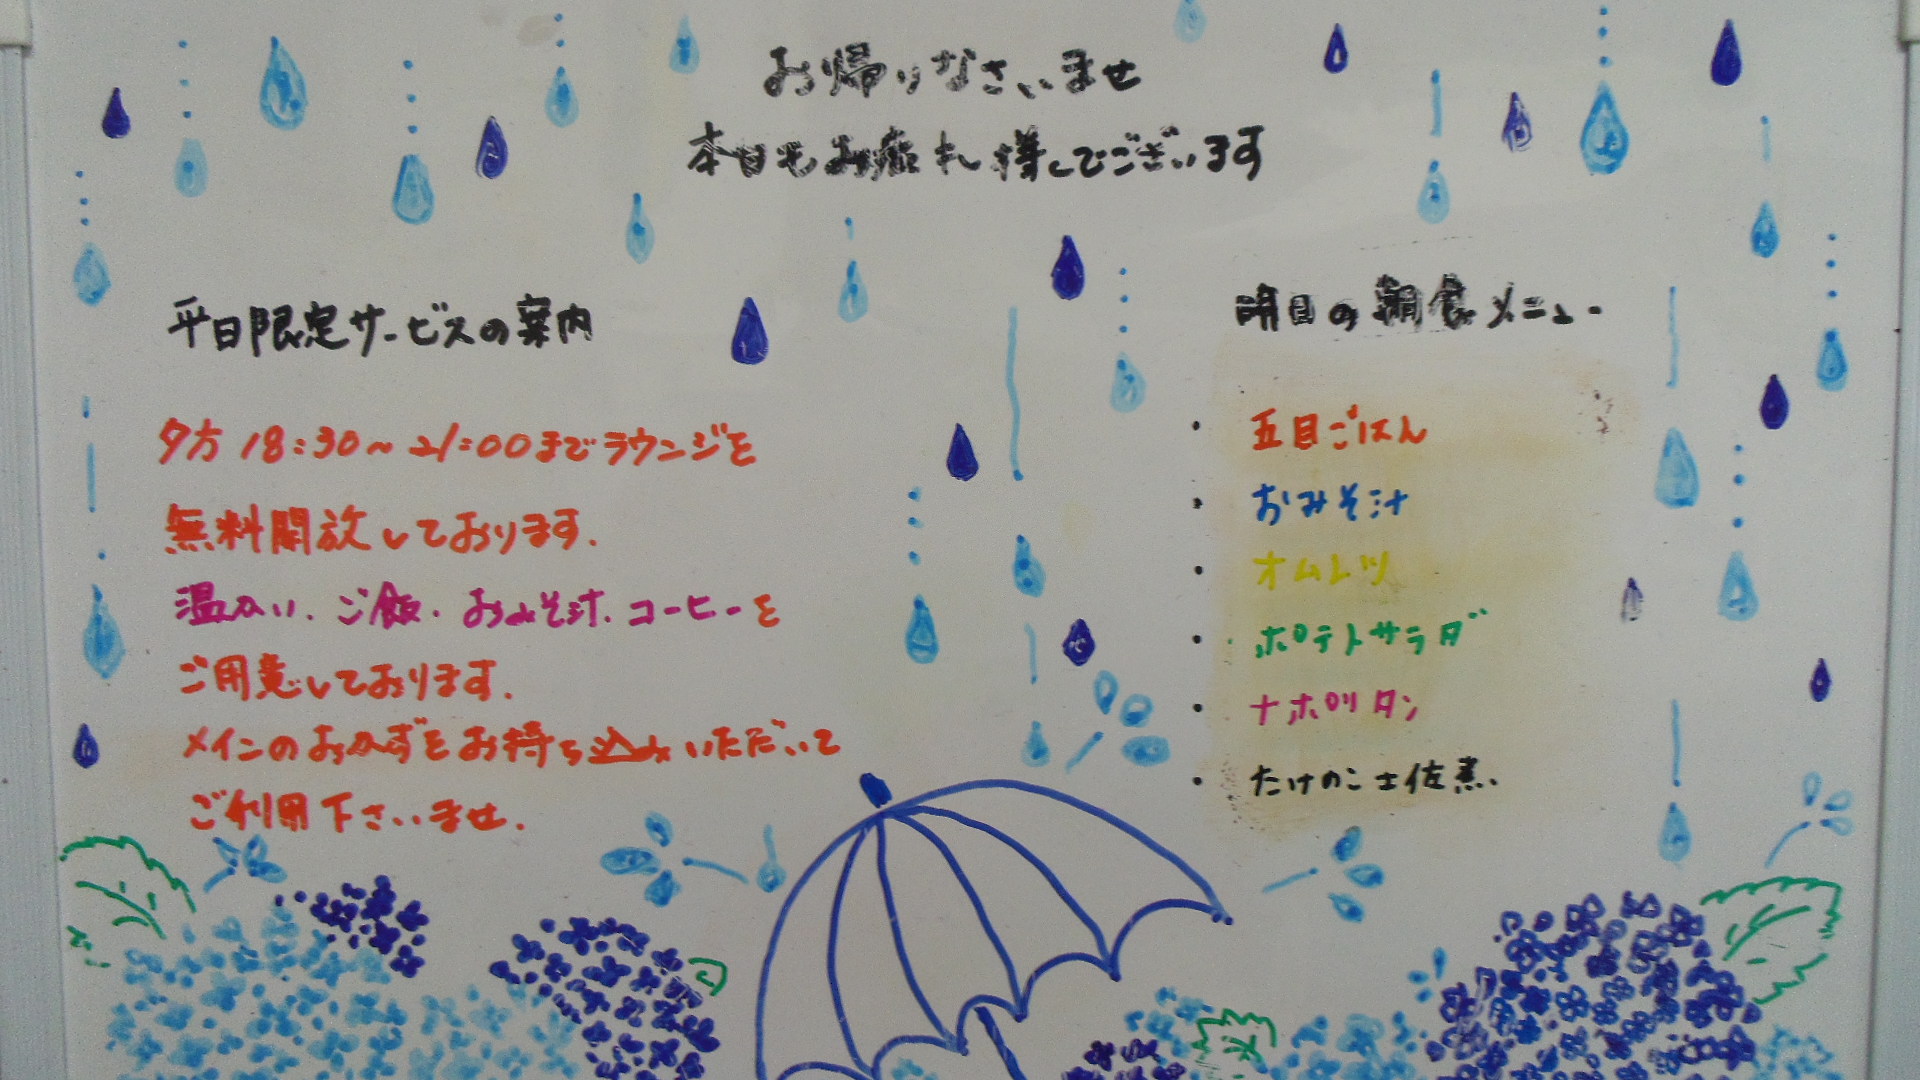 お帰りなさいませ
本日もお疲れ様でございます
平日限定サービスの案内
夕方18:30～21:00までラウンジを
無料開放しております.
温かい.ご飯.おみそ汁.コーヒーを
ご用意しております.
メインのおかずをお持ち込みいただいて
ご利用下さいませ.
明日の朝食メニュー
・五目ごはん
・おみそ汁
・オムレツ
・ポテトサラダ
・ナポリタン
・たけのこ土佐煮.